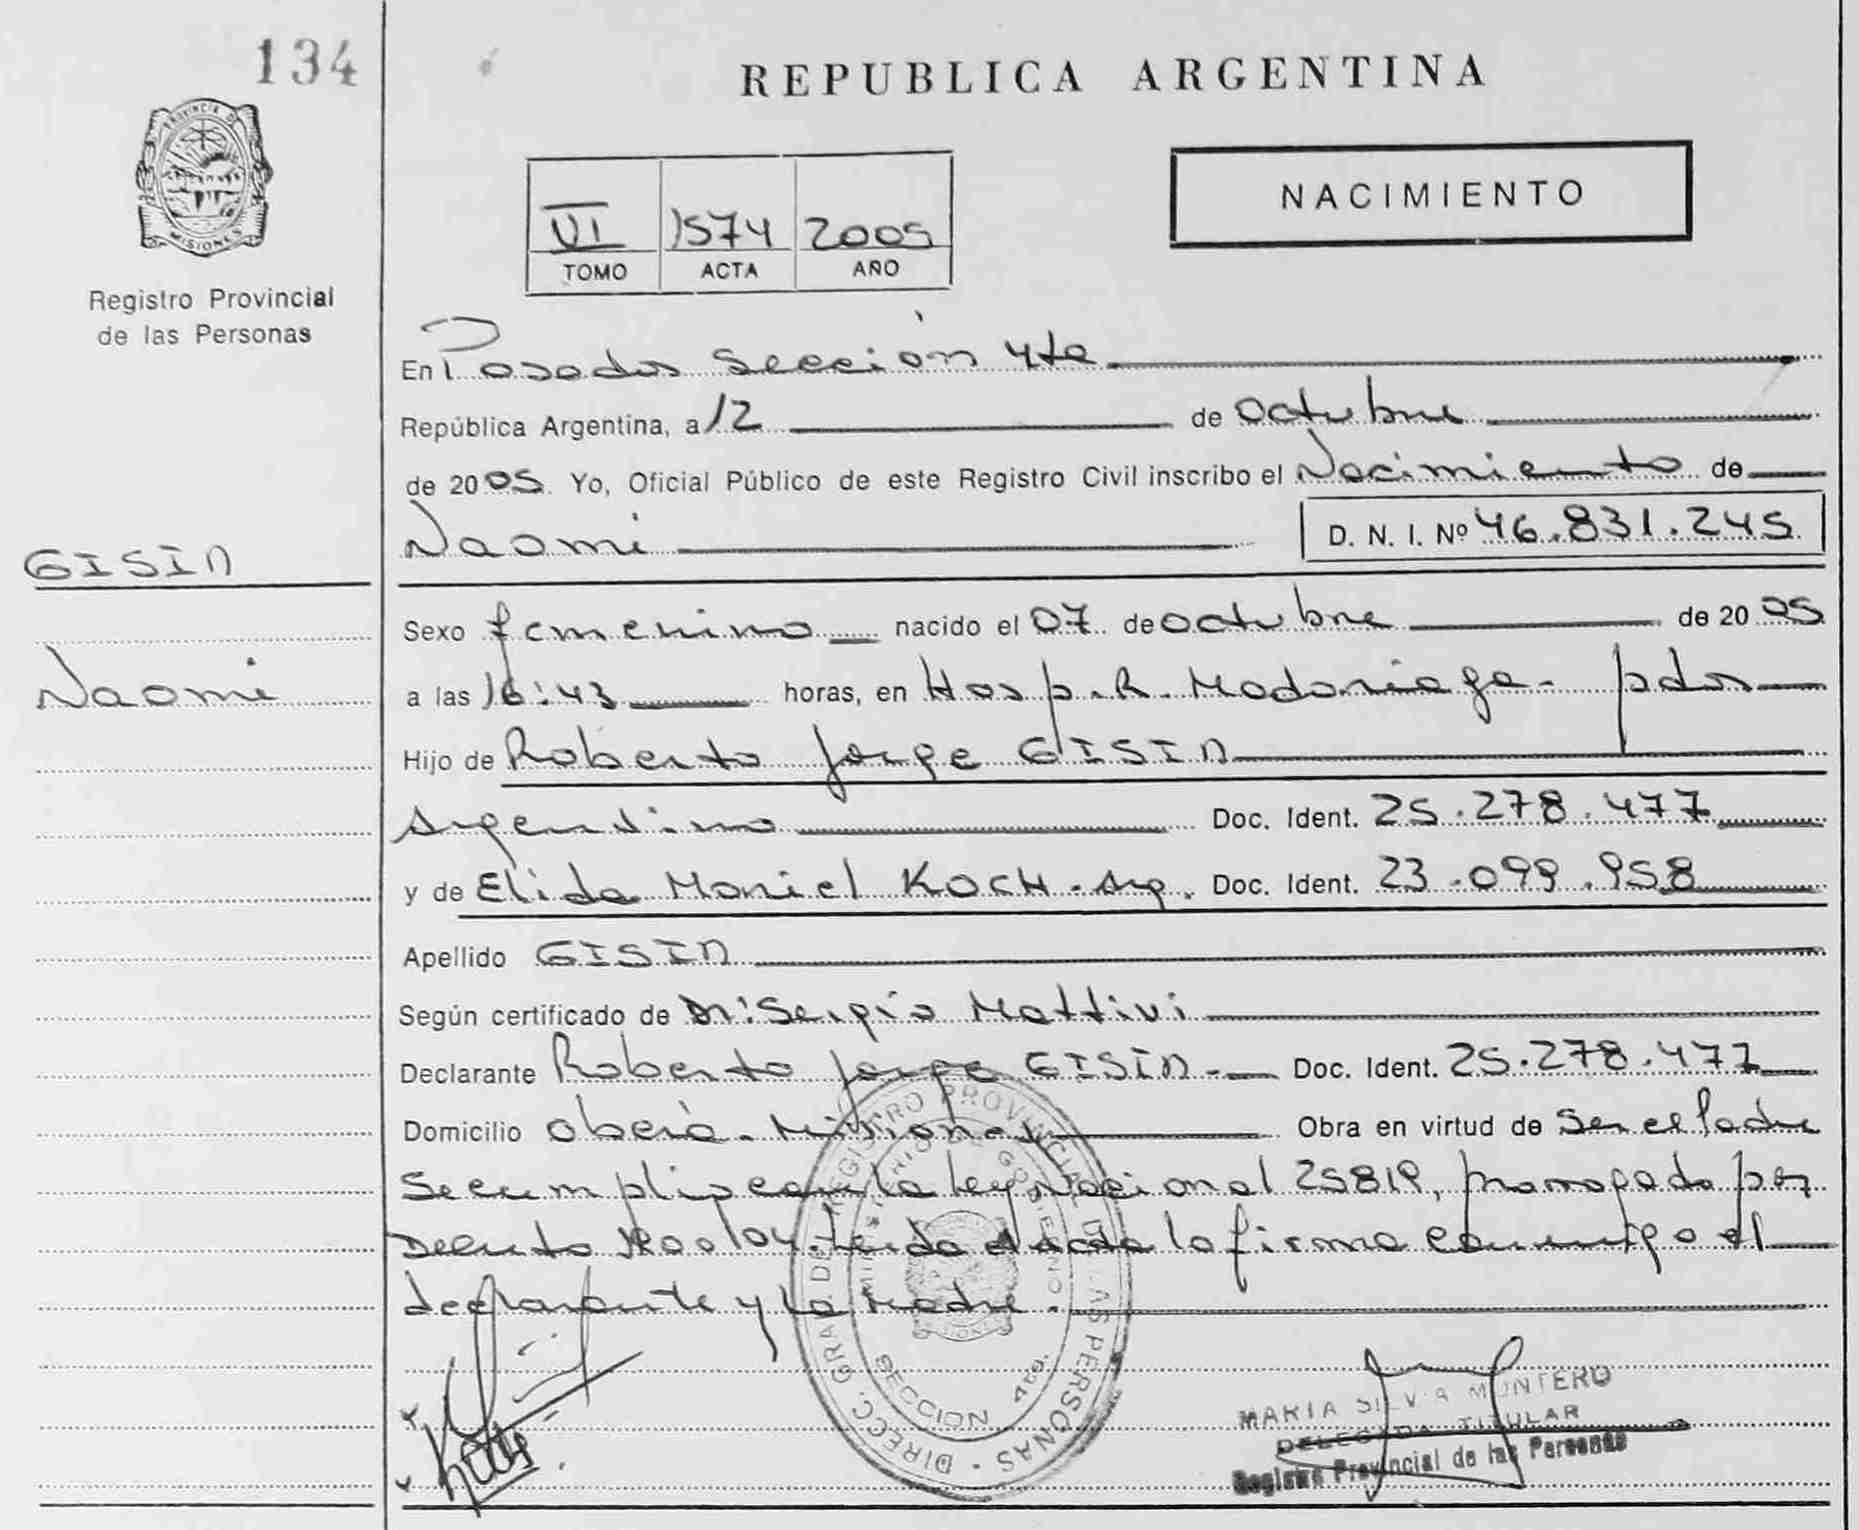 134
PROVINCIA DE
MISIONES
Registro Provincial
de las Personas
REPUBLICA ARGENTINA
NACIMIENTO
VI 1574 2005
TOMO ACTA AÑO
En Posadas sección 4ta
República Argentina, a 12 de octubre
de 2005. Yo, Oficial Público de este Registro Civil inscribo el Nacimiento de
Naomi D. N. I. Nº 46.831.245
GISIN
Naomi
Sexo femenino nacido el 07 de octubre de 2005
a las 16:43 horas, en Hosp. R. Madariaga - pdas
Hijo de Roberto Jorge GISIN
Argentino Doc. Ident. 25.278.477
y de Elida Mariel KOCH - Arg. Doc. Ident. 23.099.958
Apellido GISIN
Según certificado de Dr: Sergio Mattivi
Declarante Roberto Jorge GISIN - Doc. Ident. 25.278.477
Domicilio Oberá - Misiones Obra en virtud de ser el Padre
Se cumplió con la ley Nacional 25819, prorrogada por
Decreto Leída el acta la firma conmigo el
declarante y la Madre.
DIRECC. GRAL. DE REGISTRO PROVINCIAL DE LAS PERSONAS
MINISTERIO DE GOBIERNO
SECCION 4ta.
MISIONES
MARIA SILVIA MONTERO
DELEGADA TITULAR
Registro Provincial de las Personas